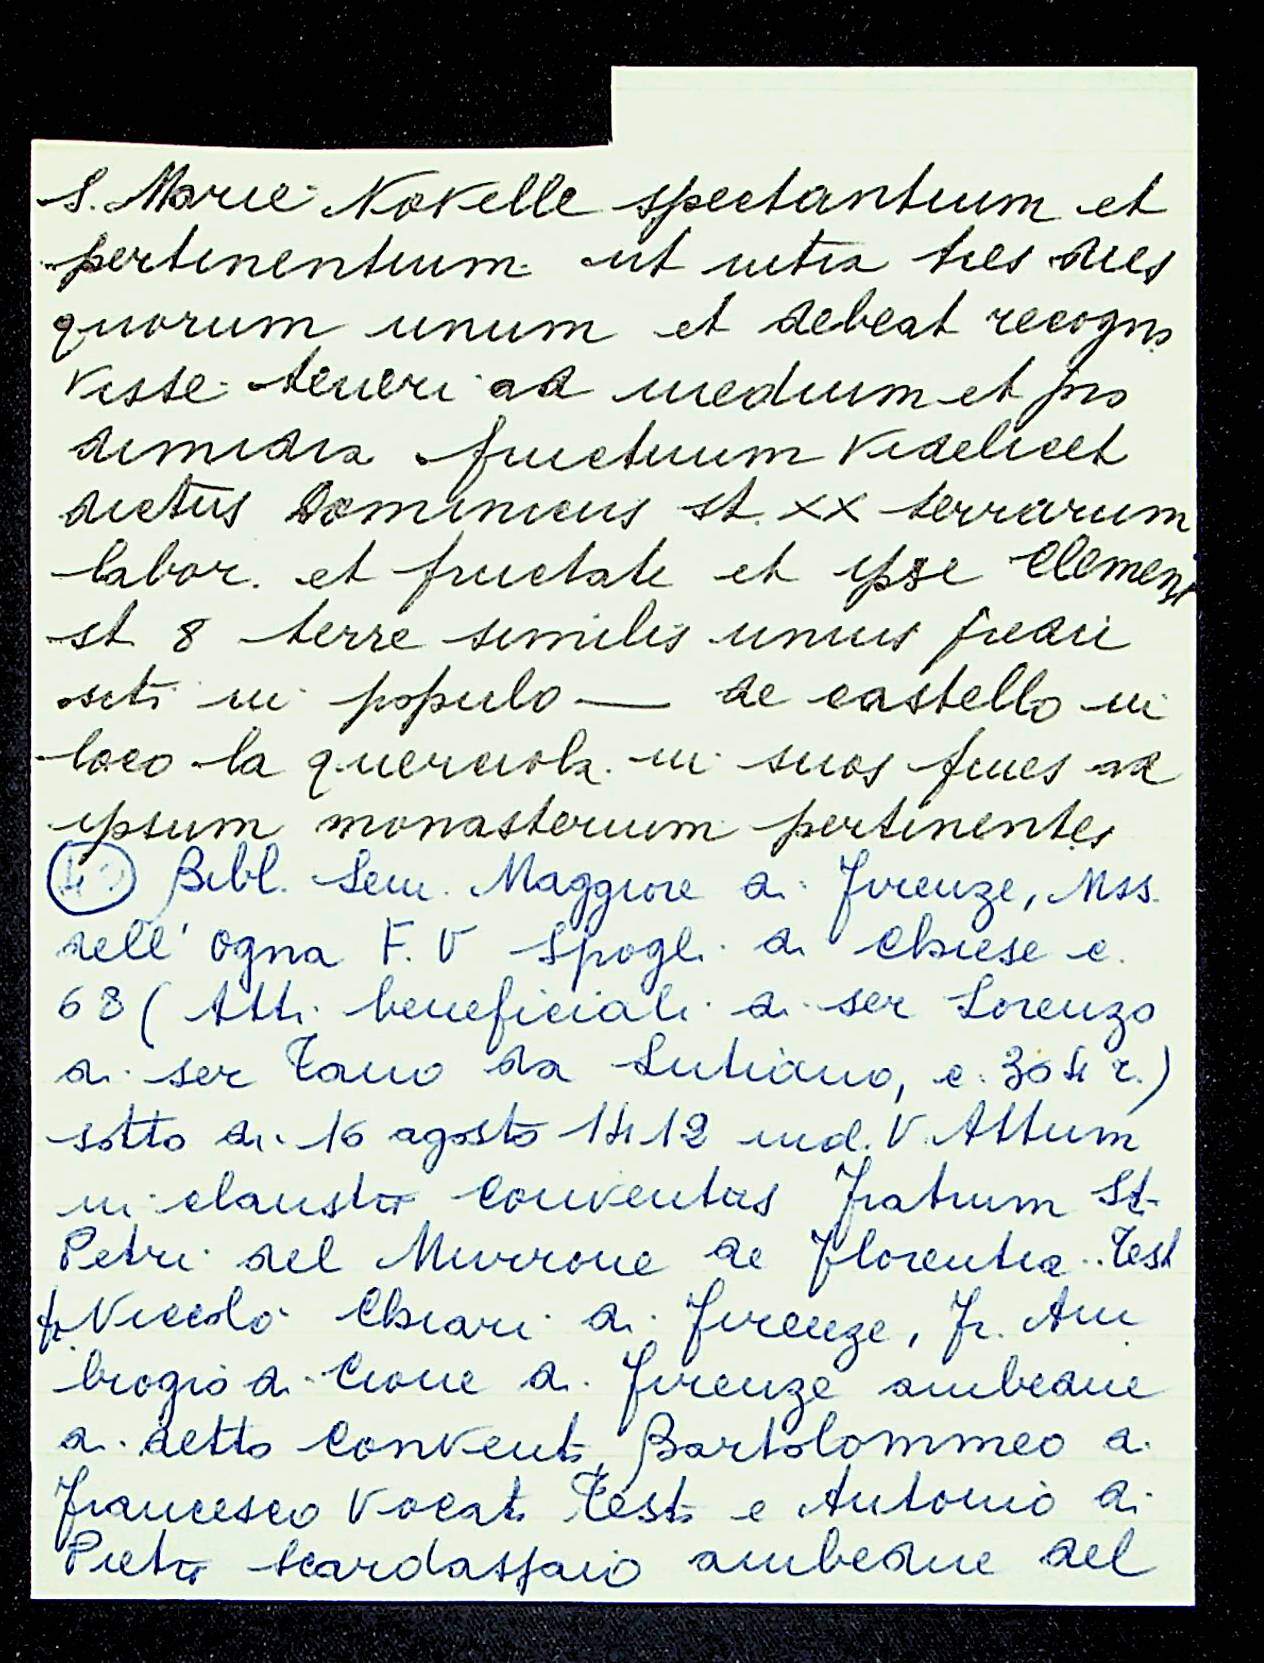 S. Marie Novelle spectantium et
pertinentium ut infra tres dies
quorum unum et debeat recogno
visse teneri ad medium et pro
dimidia fructuum videlicet
dictus Dominicus st. XX terrarum
labor. et fructate et ipse Clemens
st 8 terre similis unius predii
siti in populo — de castello in
loco la querciola in suos fines ad
ipsum monasterium pertinentes
Bibl. Sem. Maggiore di Firenze, Mss.
dell'Ogna F. V Spogli di chiese c.
68 (Atti beneficiali di ser Lorenzo
di ser Tano da Lutiano, c. 304 r.)
sotto dì 16 agosto 1412 ind. V. Attum
in claustro conventus Fratrum St.
Petri del Murrone de Florentia. Test
fr. Niccolò Chiari di Firenze, Fr. Am
brogio di Cione di Firenze ambedue
di detto convento, Bartolommeo di
Francesco vocat. Testi e Antonio di
Pietro scardassaio ambedue del